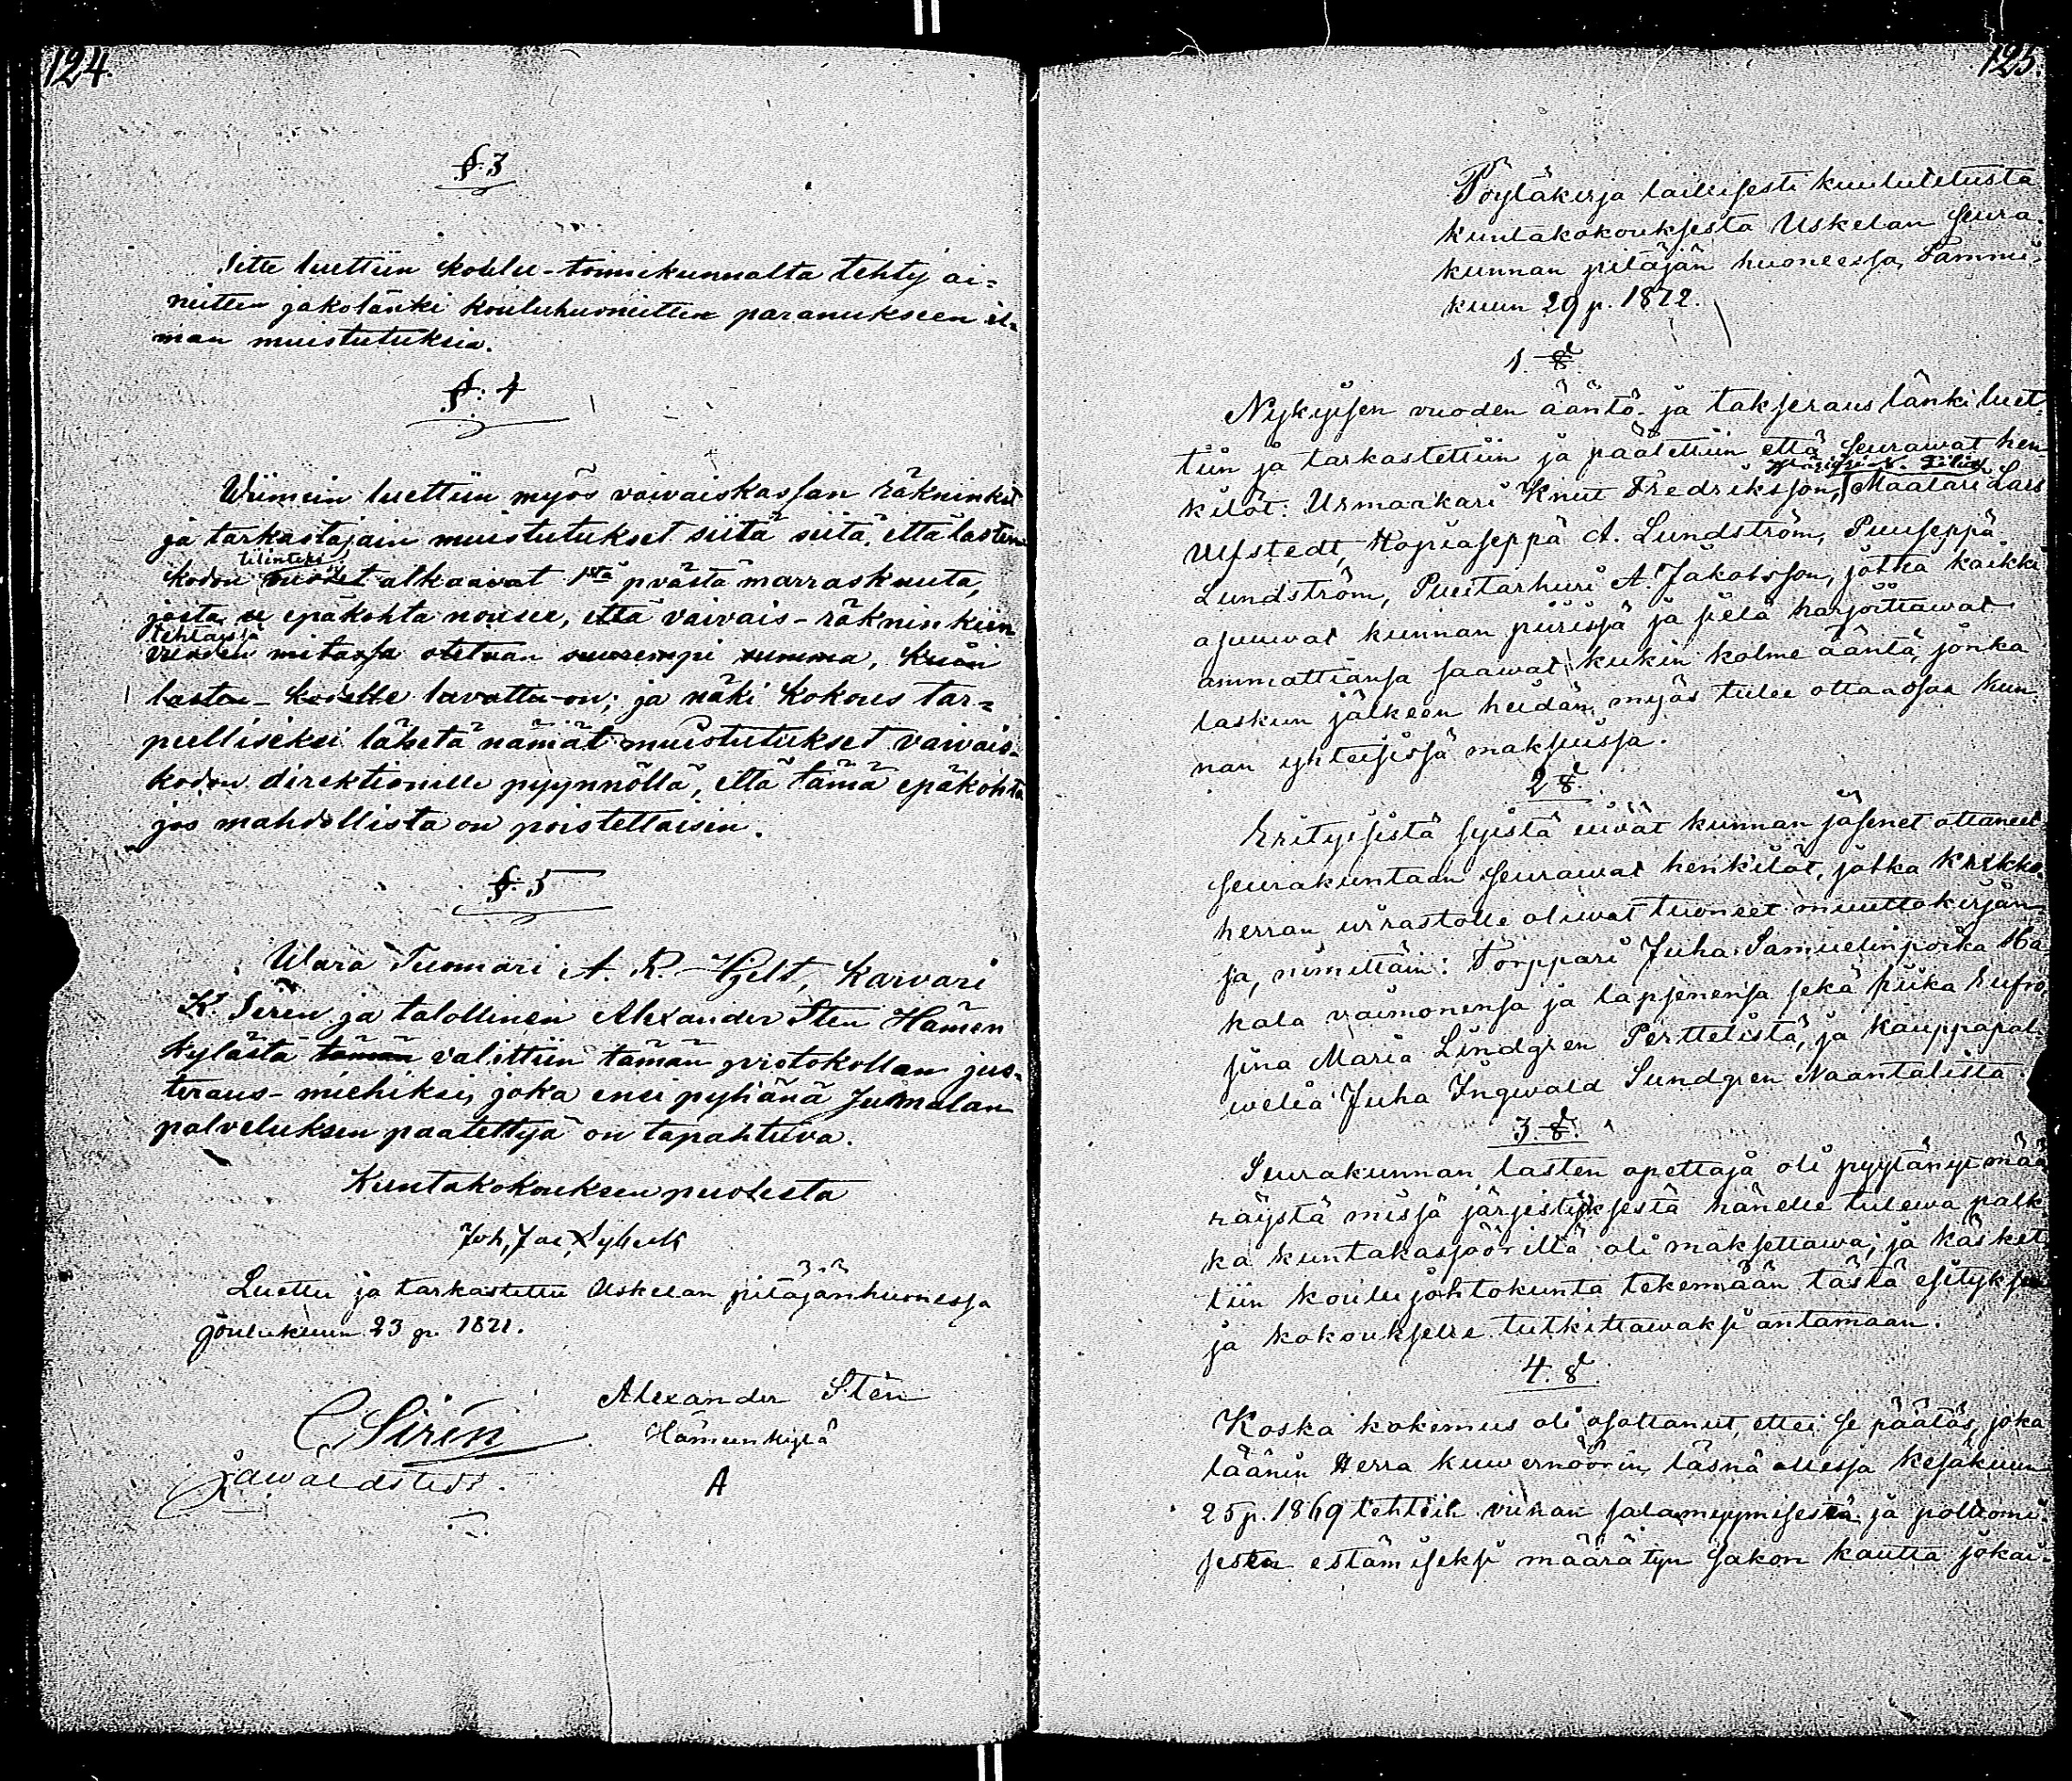 124.
§. 3
Sitte luettiin koulu-toimikunnalta tehty ai-
neitten jakolänki kouluhuoneitten paranukseen il-
man muistutuksia.
§. 4
Wiimein luettiin myös vaivaiskassan räkninkit
ja tarkastajain muistutukset siitä siitä, että lasten
tilinteko
kodon vuodet alkaavat 1stä p:västä marraskuuta,
josta se epäkohta nousee, että vaivais-räkninkiin
tehtäissä
vuoden mitassa otetaan suurempi summa, kuin
lasten-kodolle luvattu on; ja näki kokous tar-
peelliseksi lähetä nämät muistutukset vaivais-
kodon direktionille pyynnöllä, että tämä epäkohta
jos mahdollista on poistettaisiin.
§. 5
Wara Tuomari A. R. Hjelt, Karvari
K. Sirén ja talollinen Alexander Sten Hämen
kylästä tämän valittiin tämän protokollan jus-
teraus-miehiksi, joka ensi pyhänä Jumalan
palveluksen päätettyä on tapahtuva.
Kuntakokouksen puolesta
Joh, Jac,
Luettu ja tarkastettu Uskelan pitäjänhuonessa
Joulukuun 23 p. 1871.
C. Sirén
Alexander Sten
Hämeenkylä
J a Waldstedt.
A
125.
Pöytäkirja laillisesti kuulutetusta
kuntakokouksesta Uskelan seura-
kunnan pitäjän huoneessa, Tammi-
kuun 29 p. 1872.
1. §.
Nykyisen vuoden ääntö- ja takseraus länki luet-
tiin ja tarkastettiin ja päätettiin että seurawat hen
kilöt: Urmaakari Knut Fredriksson, Maalari Lars
Ulfstedt, Kopiaseppä A. Lundström, Puuseppä
Lundström, Puutarhuri A. Jakobsson, jotka kaikki
asuuvat kunnan piirissä ja sielä harjoittawat
ammattiansa saawat kukin kolme ääntä, jonka
laskun jälkeen heidän myös tulee ottaa osaa kun-
nan yhteisissä maksuissa.
2 §.
Erityisistä syistä eiwät kunnan jäsenet ottaneet
seurakuntaan seurawat henkilöt, jotka kirkko-
herran wirastolle oliwat tuoneet muuttokirjan-
sa, nimittäin: Torppari Juha Samuelinpoika Ha
kala vaimonensa ja lapsenensa sekä piika Eufro-
sina Maria Lindgren Perttelistä, ja kauppapal-
welia Juha Ingwald Sundgren Naantalista.
3. §.
Seurakunnan lasten opettaja oli pyytänyt mää
räystä missä järjestyksestä hänelle tulewa palk-
ka kuntakasjööriltä oli maksettawa; ja käsket-
tiin koulujohtokunta tekemään tästä esityksen
ja kokoukselle tutkittawaksi antamaan.
4. §.
Koska kokemus oli osottanut, ettei se päätös, joka
läänin Herra Kuwernöörin läsnä ollessa Kesäkuun
25 p. 1869 tehtiin viinan salamyymisestä ja polttomi-
sesta estämiseksi määrätyn sakon kautta jokai-